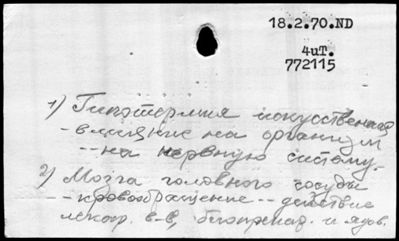 18.2.70.ND
4чТ.
772115
1) Гипотермия искуственная
- влияние на организм
-- на нервную систему.
2) Мозга головного сосуды
- кровообращение -- действие
лекар. в-в, биопрепар. и ядов.